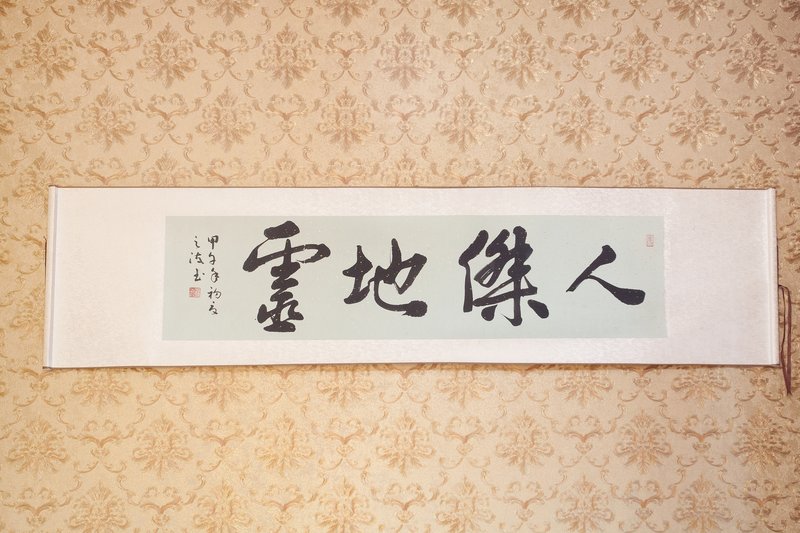 人傑地靈
甲午年初夏
之波书